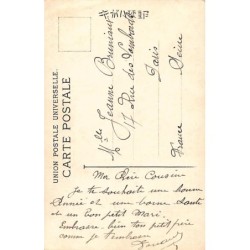 UNION POSTALE UNIVERSELLE.
CARTE POSTALE
Mlle Jeanne
17 Rue des Lombards
Paris
Seine
France
Ma Chère Cousine
Je te souhait une bonne
Année et une bonne Santé
et un bon petit Mari.
Embrasse bien ton petit père
comme je t'embrasse